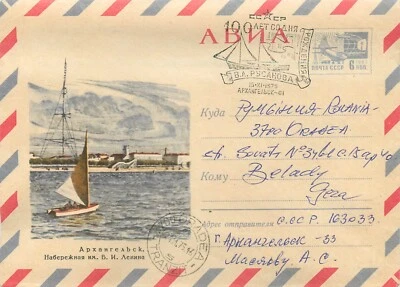 СССР
АВИА
100 ЛЕТ СО ДНЯ
РОЖДЕНИЯ
В.А. РУСАНОВА
15-XI-1975
АРХАНГЕЛЬСК
ПОЧТА СССР 6 КОП
Куда Румыния
3700 Oradea
str. Sovata Nº 34 bl C.
Кому Beladg
Geza
Адрес отправителя СССР 163033
г. Архангельск-33
А. С.
Архангельск.
Набережная им. В. И. Ленина
ORADEA
TRANZIT